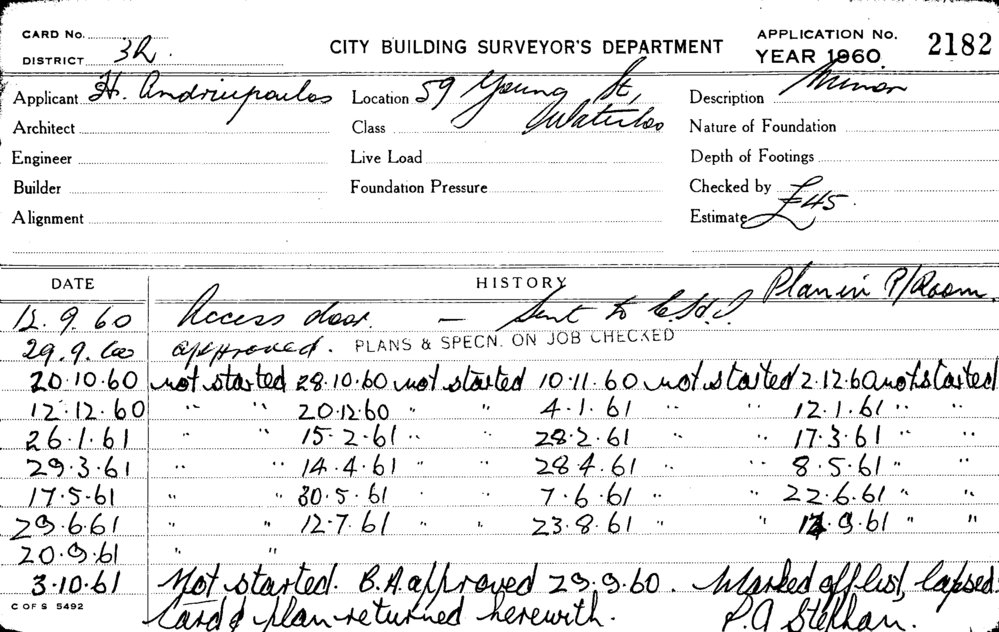 CARD No.
DISTRICT 3R.
CITY BUILDING SURVEYOR'S DEPARTMENT
APPLICATION No.
YEAR 1960.
2182
Applicant H. Andriupoulos Location 59 Young St, Description Minor
Architect Class Waterloo Nature of Foundation
Engineer Live Load Depth of Footings
Builder Foundation Pressure Checked by
Alignment Estimate £45.
DATE HISTORY Plan in P/Room.
12.9.60 Access door. — Sent to
29.9.60 approved. PLANS & SPECN. ON JOB CHECKED
20.10.60 not started 28.10.60 not started 10.11.60 not started 2.12.60 not started
12.12.60 " " 20.12.60 " " 4.1.61 " " 12.1.61 " "
26.1.61 " " 15.2.61 " " 28.2.61 " " 17.3.61 " "
29.3.61 " " 14.4.61 " " 28.4.61 " " 8.5.61 " "
17.5.61 " " 30.5.61 " " 7.6.61 " " 22.6.61 " "
29.6.61 " " 12.7.61 " " 23.8.61 " " 9.61 " "
20.9.61 " "
3.10.61 Not started. B.A. approved 29.9.60. Marked off list, lapsed.
Card & plan returned herewith. P.A Stephan.
C OF S 5492